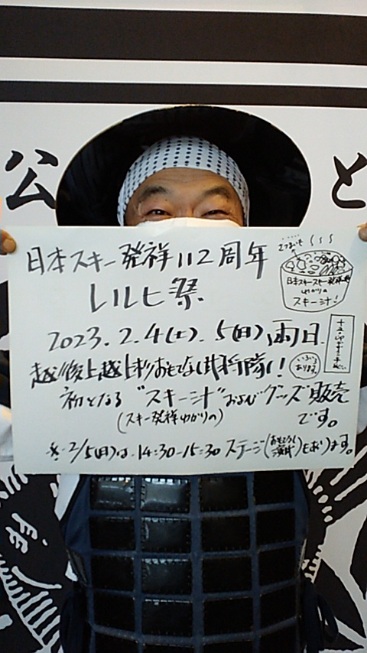 公 と
日本スキー発祥112周年
レルヒ祭
2023.2.4(土).5(日)両日
越後上越上杉おもてなし武将隊!
初となる"スキー汁"およびグッズ販売
(スキー発祥ゆかりの)
です。
※2/5(日)は、14:30-15:30 ステージ
もあります。
日本スキー発祥
ゆかりの
スキー汁!